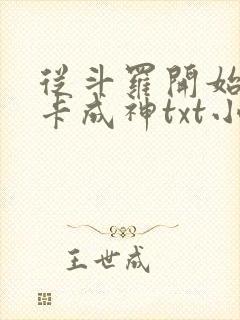 從斗羅開始
卡成神txt小
王世成